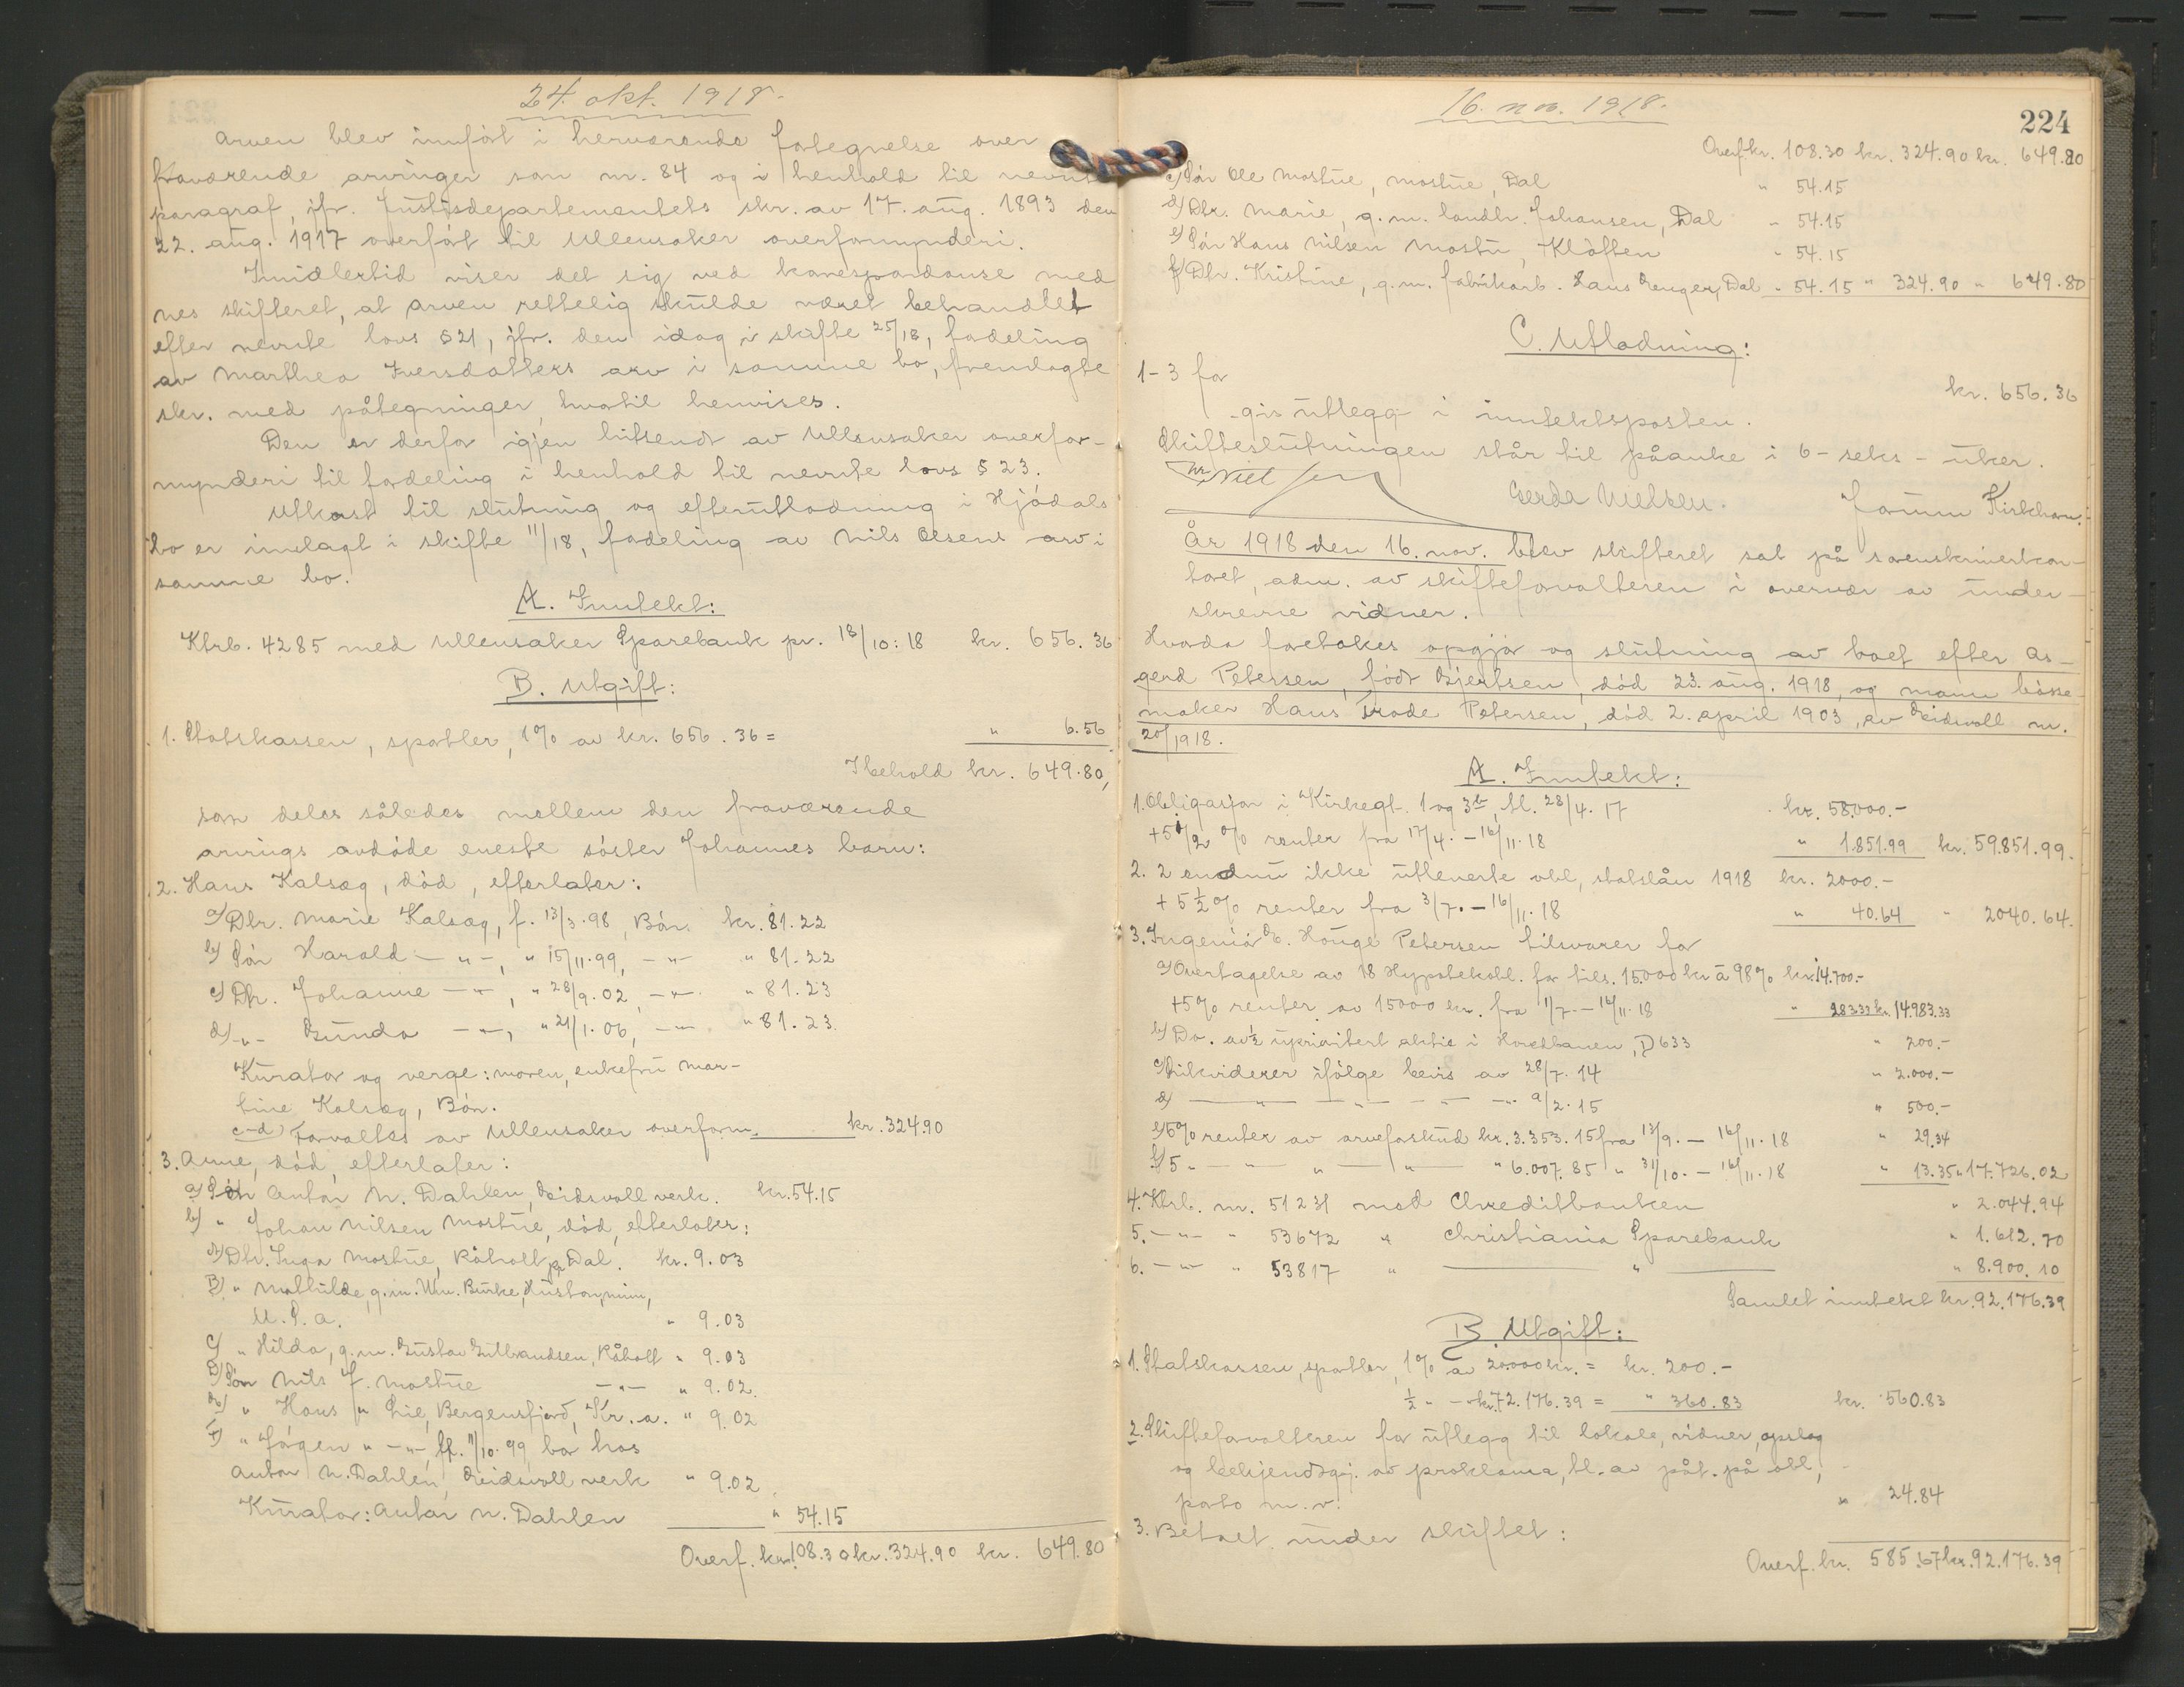 24. okt. 1918.
Arven blev innført i herværende fortegnelse over
fraværende arvinger som nr. 84 og i henhold til nevnte
paragraf, jfr. Justisdepartementets skr. av 17. aug. 1893 den
22. aug. 1917 overført til Ullensaker overformynderi.
Imidlertid viser det sig ved korrespondanse med
nes skifteret, at arven rettelig skulde været behandlet
efter nevnte lovs § 21, jfr. den idag i skifte 25/18, fordeling
av Marthea Iversdatters arv i samme bo, fremlagte
skr. med påtegninger, hvortil henvises.
Den er derfor igjen hitsendt av Ullensaker overfor-
mynderi til fordeling i henhold til nevnte lovs § 23.
Utkast til slutning og efterutlodning i Hjódals
bo er innlagt i skifte 11/18, fordeling av Nils Olsens arv i
samme bo.
A. Inntekt:
Ktrb. 4285 med Ullensaker Sparebank pr. 18/10:18 kr. 656.36
B. Utgift:
1. Statskassen, sportler, 1% av kr. 656.36 = " 6.56
Ibehold kr. 649.80,
som deles således mellem den fraværende
arvings avdøde eneste søster Johannes barn:
2. Hans Kalsæg, død, efterlater:
a) Dtr. Marie Kalsæg, f. 13/3.98, Bøn. kr. 81.22
b) Søn Harald - " -, " 15/11.99, - " - " 81.22
c) Dtr. Johanne - " -, " 28/9.02, - " - " 81.23
d) - " - Gunda - " -, " 21/1.06, - " - " 81.23.
Kurator og verge: moren, enkefru Mar-
tine Kalsæg, Bøn.
c-d) Forvaltes av Ullensaker overform. kr. 324.90
3. Anne, død, efterlater:
a) Søn Anton N. Dahlen, Eidsvoll verk. kr. 54.15
b) " Johan Nilsen Mostue, død, efterlater:
A) Dtr. Inga Mostue, Råholt pr. Dal. kr. 9.03
B) " Mathilde, g.m. Wm. Burke,
U.S.A. " 9.03
C) " Hilda, g.m. Gustav Gulbrandsen, Råholt " 9.03
D) Søn Nils J. Mostue - " - " 9.02.
E) " Hans " Lie, Bergensfjord, Kr.a. " 9.02
F) " Jørgen " - " -, f. 1/10.99, bor hos
Anton N. Dahlen, Eidsvoll verk " 9.02
Kurator: Anton N. Dahlen " 54.15
Overf. kr. 108.30 kr. 324.90 kr. 649.80
16. nov. 1918.
224
Overf. kr. 108.30 kr. 324.90 kr. 649.80
c) Søn Ole Mostue, Mostue, Dal " 54.15
d) Dtr. Marie, g.m. landh. Johansen, Dal " 54.15
e) Søn Hans Nilsen Mostu, Kløften " 54.15
f) Dtr. Kristine, g.m. fabrikarb. Hans Venger, Dal " 54.15 " 324.90 " 649.80
C. Utlodning:
1-3 for kr. 656.36
gis utlegg i inntektsposten.
Skifteslutningen står til påanke i 6 - seks - uker.
Gerda Nielsen.
År 1918 den 16. nov. blev skifteret sat på sorenskriverkon-
toret, adm. av skifteforvalteren i overvær av under-
skrevne vidner.
Hvorda foretokes opgjør og slutning av boet efter As-
gerd Petersen, født Gjertsen, død 23. aug. 1918, og mann bøsse-
maker Hans Trode Petersen, død 2. april 1903, av Eidsvoll nr.
20/1918.
A. Inntekt:
1. Obligasjon i Kirkegt. 1 og 3b, tl. 28/4.17 kr. 58.000.-
+ 5 1/2 % renter fra 17/4. - 16/11.18 " 1.851.99 kr. 59.851.99.
2. 2 endnu ikke utleverte obl., statslån 1918 kr. 2000.-
+ 5 1/2 % renter fra 3/7. - 16/11.18 " 40.64 " 2040.64.
3. Ingeniør Hauge Petersen tilsvarer for
a) Overtagelse av 18 Hypotekobl. for tils. 15.000 kr à 98% kr. 14.700.-
+ 5% renter av 15000 kr. fra 1/7. - 16/11.18 " 283.33 kr. 14.983.33
b) Do. av 1/2 uprioritert aktie i Hovedbanen, D 633 " 200.-
c) Likviderer ifølge bevis av 28/7.14 " 2.000.-
d) - " - - " - - " - 9/2.15 " 500.-
e) 5% renter av arveforskud kr. 3.353.15 fra 13/9. - 16/11.18 " 29.34
f) 5 " - " - " - " - " 6.007.85 " 31/10. - 16/11.18 " 13.35 " 17.726.02
4. Ktrb. nr. 51231 med Kreditbanken " 2.044.94
5. - " - " 53672 " Christiania Sparebank " 1.612.70
6. - " - " 53817 " - " - " 8.900.10
Samlet inntekt kr. 92.176.39
B. Utgift:
1. Statskassen, sportler, 1% av 20.000 kr. = kr. 200.-
1/2 " - " kr. 72.176.39 = " 360.83 kr. 560.83
2. Skifteforvalteren for utlegg til lokale, vidner, opslag
og bekjendtgj. av proklama, tl. av påt. på obl.,
porto m.v. " 24.84
3. Betalt under skiftet:
Overf. kr. 585.67 kr. 92.176.39